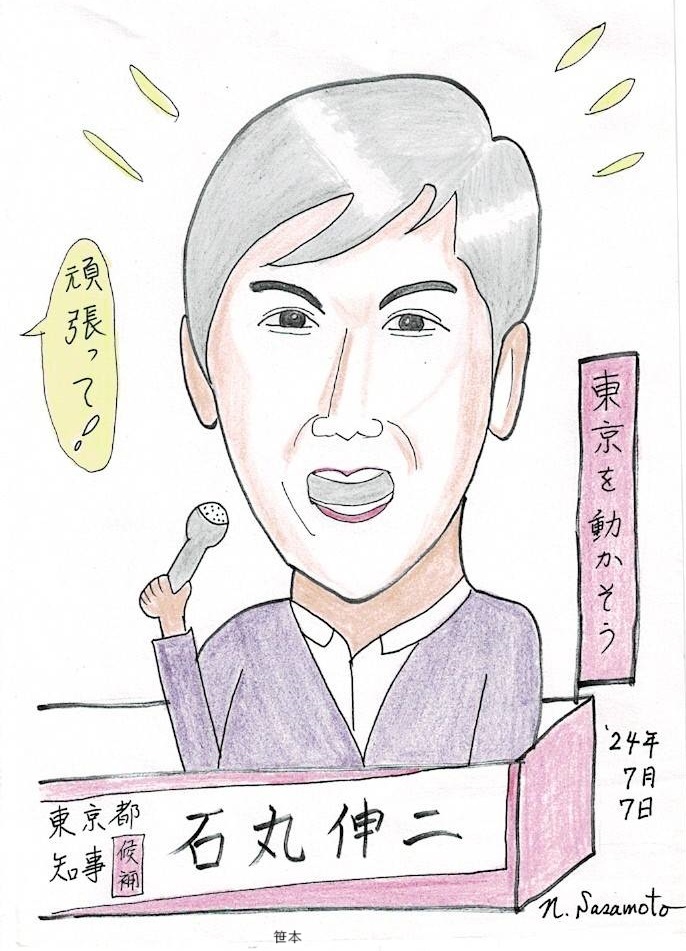 頑張って!
東京を動かそう
'24年
7月
7日
東京都
知事 候補
石丸伸二
N. Sasamoto
笹本